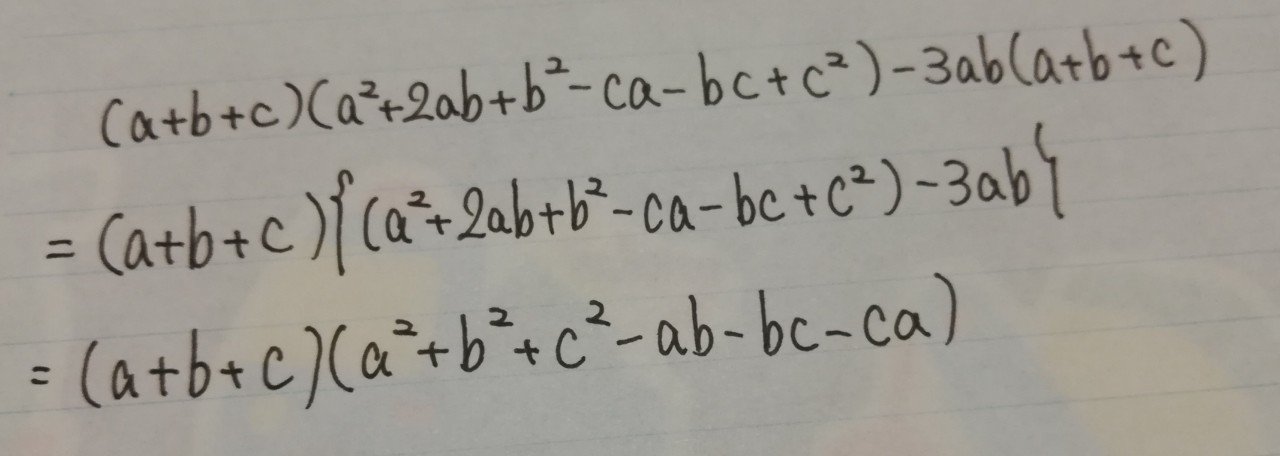 (a+b+c)(a²+2ab+b²-ca-bc+c²)-3ab(a+b+c)
=(a+b+c){(a²+2ab+b²-ca-bc+c²)-3ab}
=(a+b+c)(a²+b²+c²-ab-bc-ca)